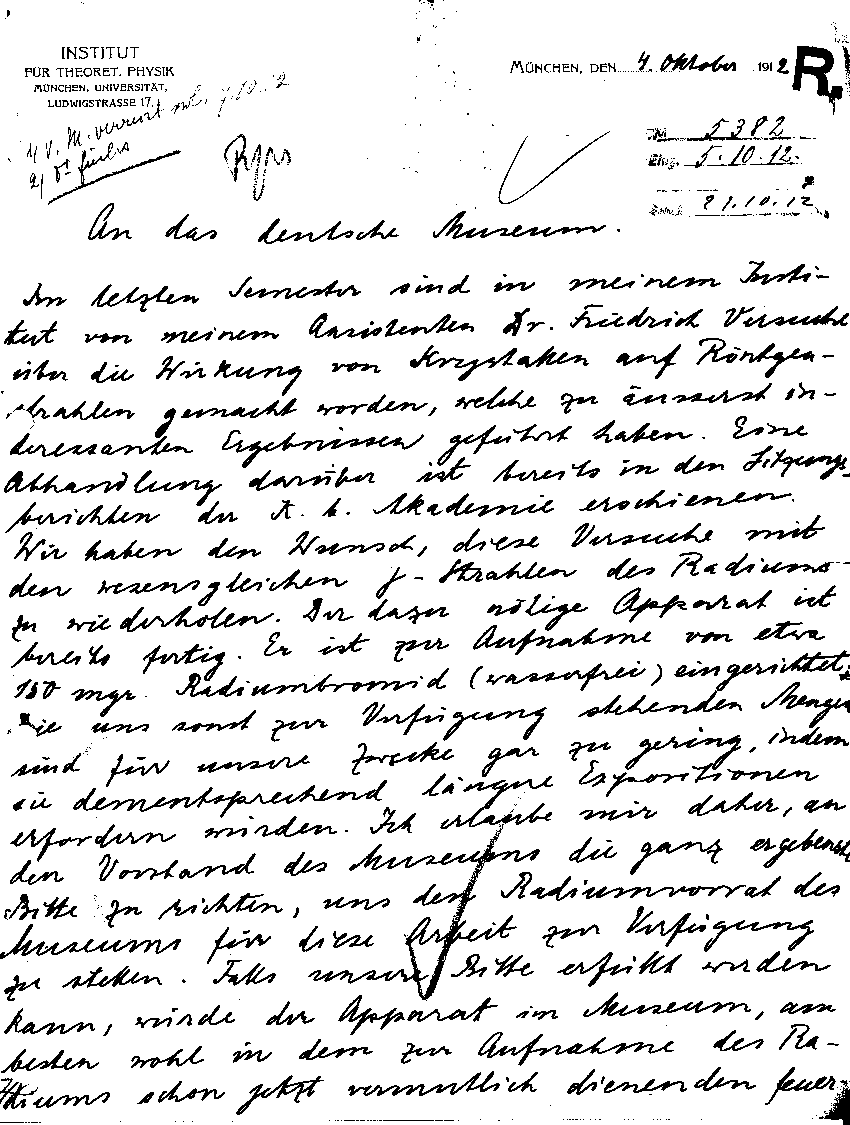 INSTITUT
FÜR THEORET. PHYSIK
MÜNCHEN, UNIVERSITÄT,
LUDWIGSTRASSE 17.
MÜNCHEN, DEN 4. Oktober 1912
R.
5382
5.10.12.
21.10.12
An das deutsche Museum.
Im letzten Semester sind in meinem Insti-
tut von meinem Assistenten Dr. Friedrich Versuche
über die Wirkung von Krystallen auf Röntgen-
strahlen gemacht worden, welche zu äusserst in-
teressanten Ergebnissen geführt haben. Eine
Abhandlung darüber ist bereits in den Sitzungs-
berichten der K. b. Akademie erschienen.
Wir haben den Wunsch, diese Versuche mit
den wesensgleichen γ-Strahlen des Radiums
zu wiederholen. Der dazu nötige Apparat ist
bereits fertig. Er ist zur Aufnahme von etwa
150 mgr. Radiumbromid (wasserfrei) eingerichtet;
die uns sonst zur Verfügung stehenden Mengen
sind für unsere Zwecke gar zu gering, indem
sie dementsprechend längere Expositionen
erfordern würden. Ich erlaube mir daher, an
den Vorstand des Museums die ganz ergebenste
Bitte zu richten, uns den Radiumvorrat des
Museums für diese Arbeit zur Verfügung
zu stellen. Falls unsere Bitte erfüllt werden
kann, würde der Apparat im Museum, am
besten wohl in dem zur Aufnahme des Ra-
diums schon jetzt vermutlich dienenden feuer-